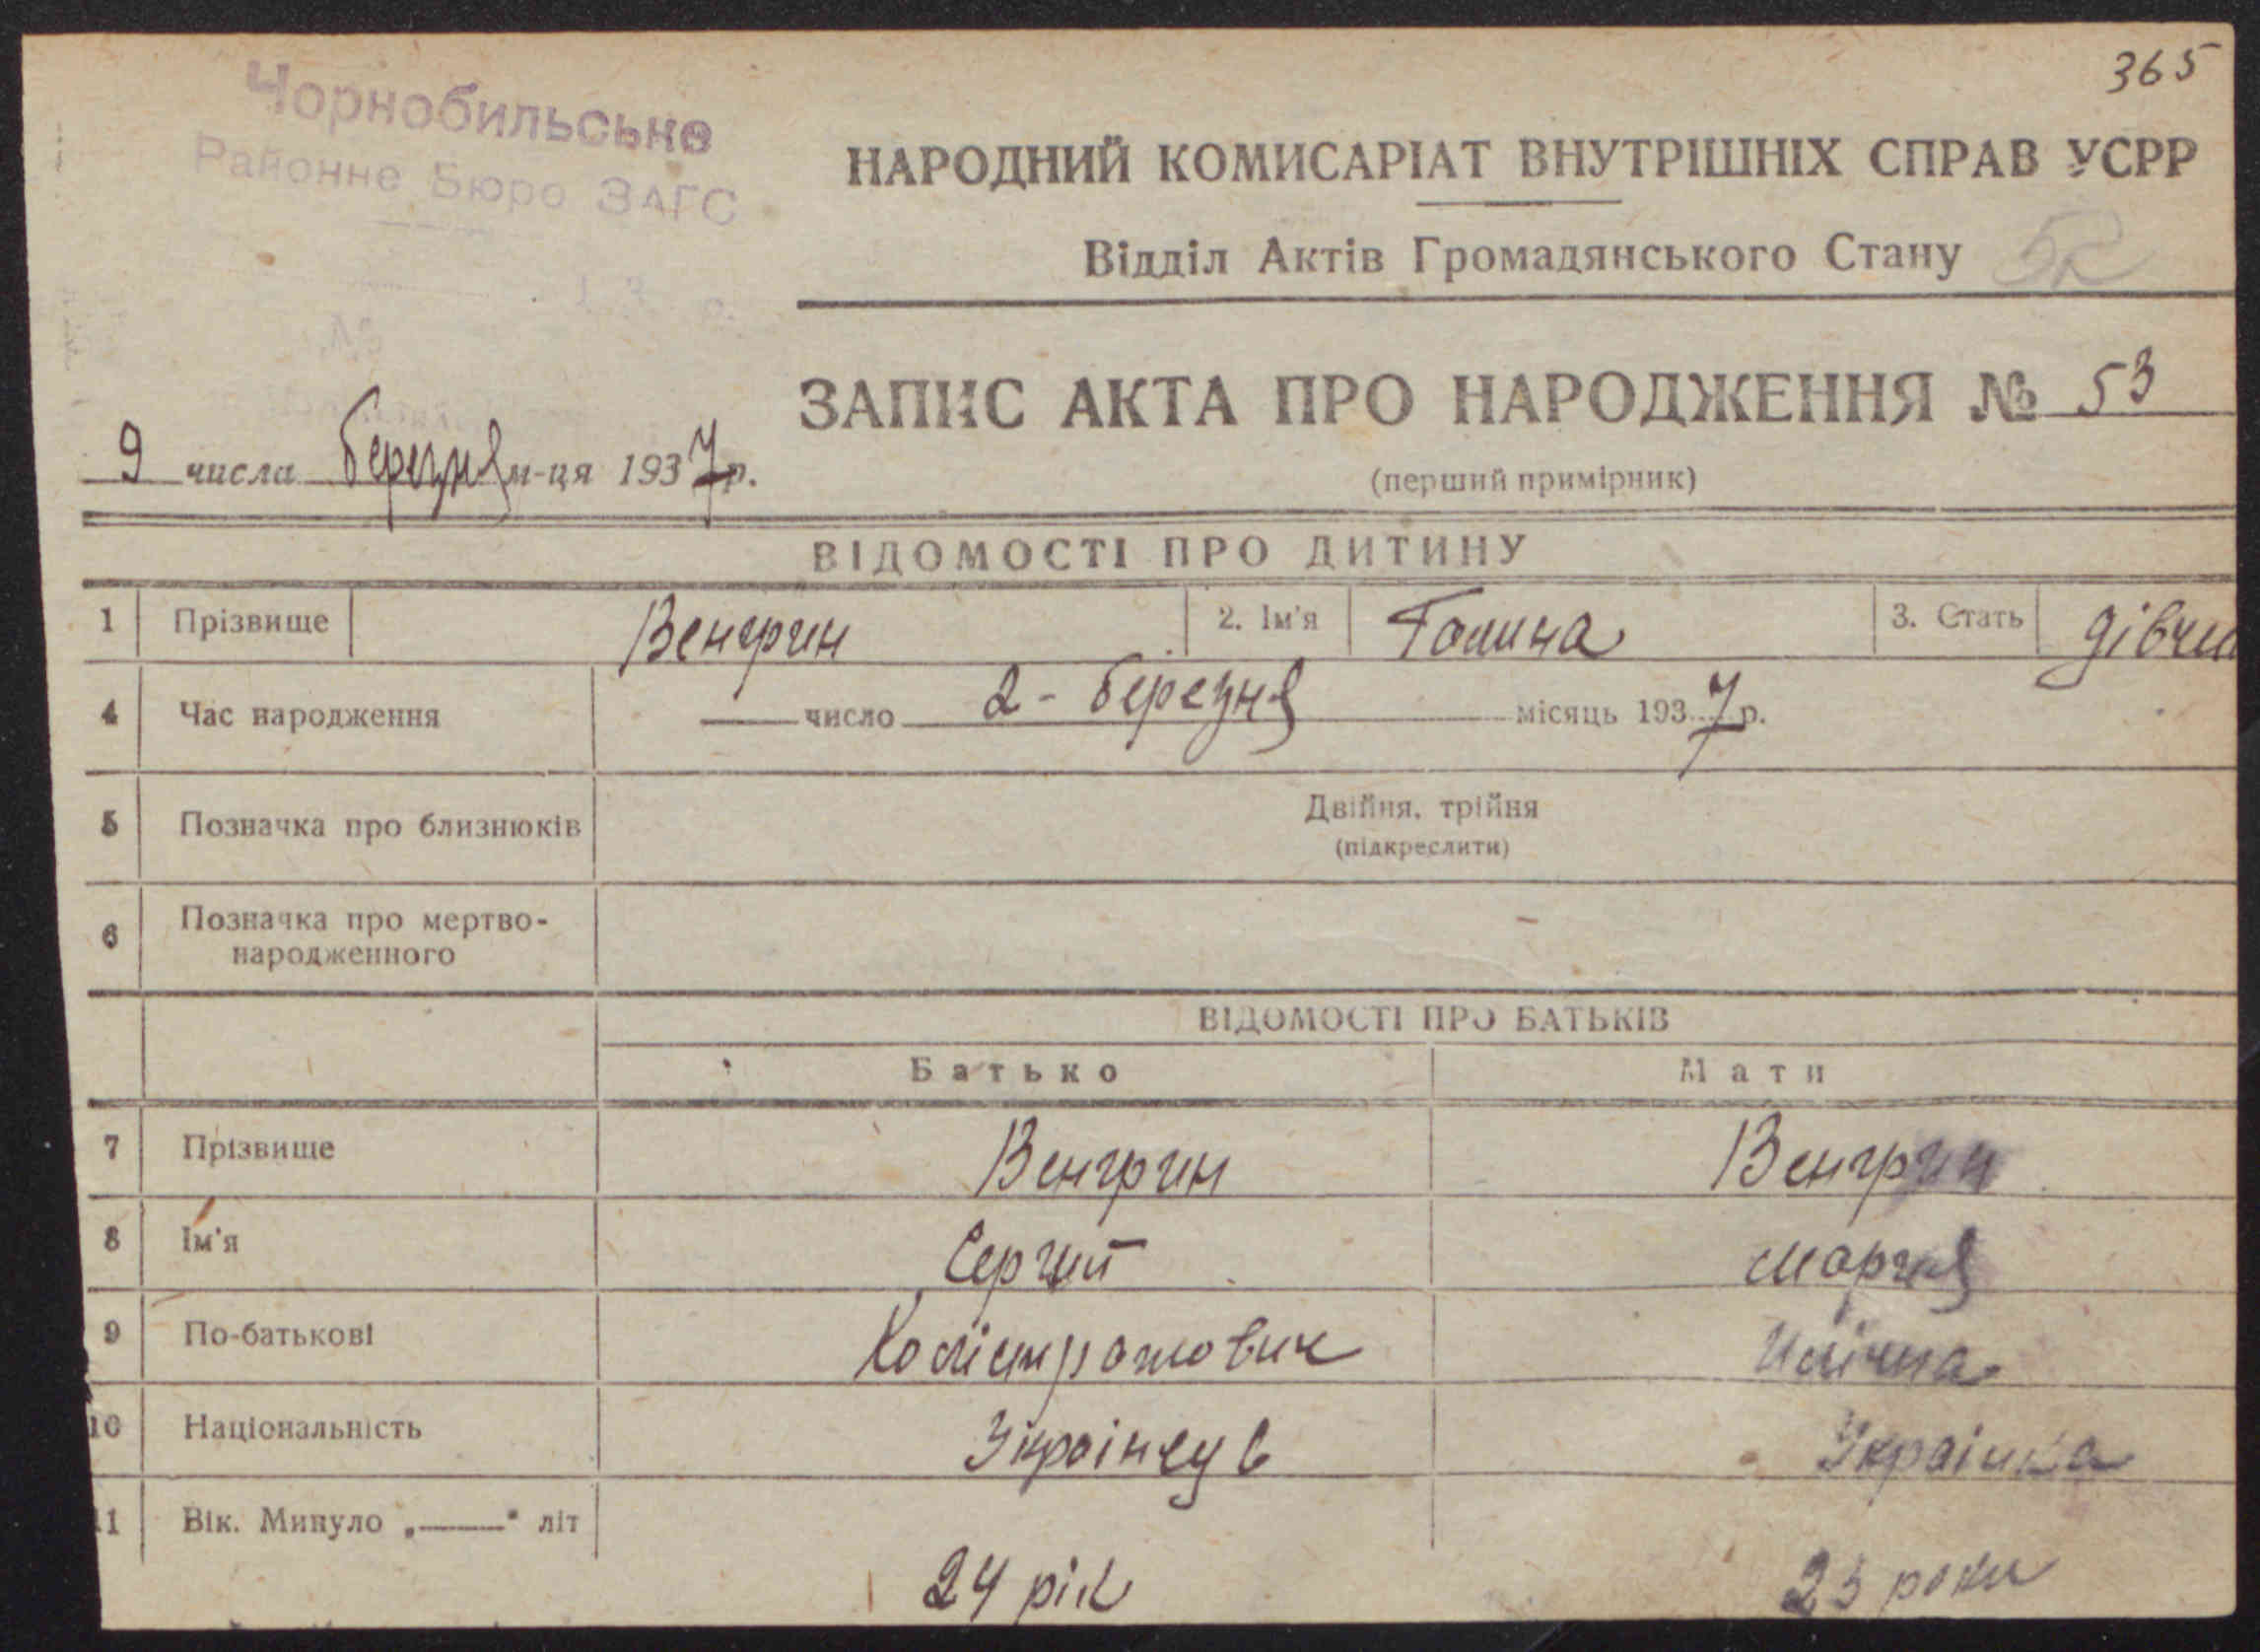 365
Чорнобильське
Районне Бюро ЗАГС
НАРОДНИЙ КОМИСАРІАТ ВНУТРІШНІХ СПРАВ УСРР
Відділ Актів Громадянського Стану 52
ЗАПИС АКТА ПРО НАРОДЖЕННЯ № 53
9 числа березня м-ця 1937 р.
(перший примірник)
ВІДОМОСТІ ПРО ДИТИНУ
1 Прізвище Венгрин 2. Ім'я Галина 3. Стать дівчи
4 Час народження число 2 - березня місяць 1937 р.
5 Позначка про близнюків Двійня, трійня
(підкреслити)
6 Позначка про мертво-
народженного
ВІДОМОСТІ ПРО БАТЬКІВ
Батько Мати
7 Прізвище Венгрин Венгрин
8 Ім'я Сергий Мария
9 По-батькові Калістратович Илічна
10 Національність Українець Українка
11 Вік. Минуло „——" літ
24 рік 23 роки